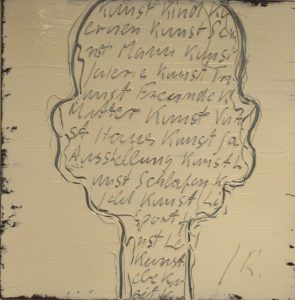 Kunst Kind Ku
ernen Kunst Se
nst Mann Kunst
Galerie Kunst
unst Freunde K
Mutter Kunst Va
st Haus Kunst Ga
Ausstellung Kunst
unst Schlafen Ku
eld Kunst Le
Sport
nst Le
Kunst
ebe Ku
st Ku
R.